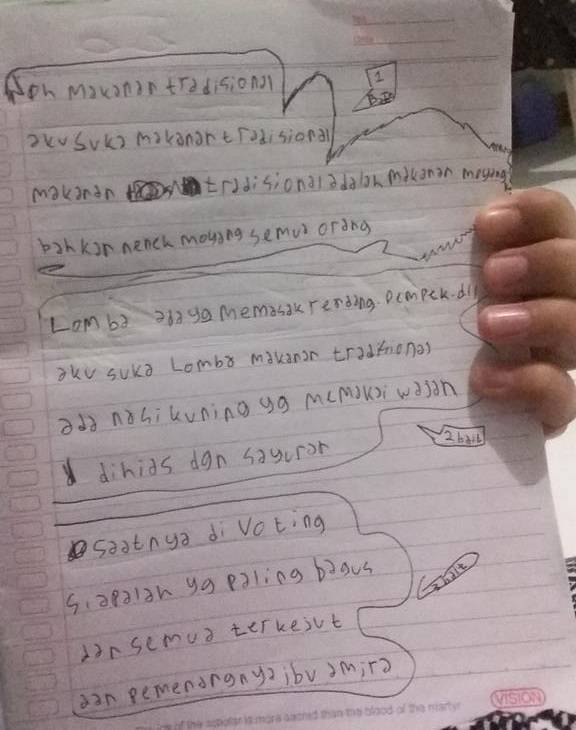 makanan tradisional
1
Bait
aku suka makanan tradisional
makanan tradisional adalah makanan moyang
bahkan nenek moyang semua orang
Lomba ada yg memasak rendang. Pempek. dll
aku suka Lomba makanan tradisional
ada nasi kuning yg memakai wajan
dihias dgn sayuran
2 bait
saatnya di voting
siapalah yg paling bagus
3 bait
dan semua terkejut
dan pemenangnya ibu amira
of the scholar is more sacred than the blood of the martyr
VISION